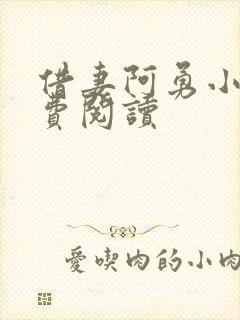 借妻阿勇小
費閱讀
愛喫肉的小肉